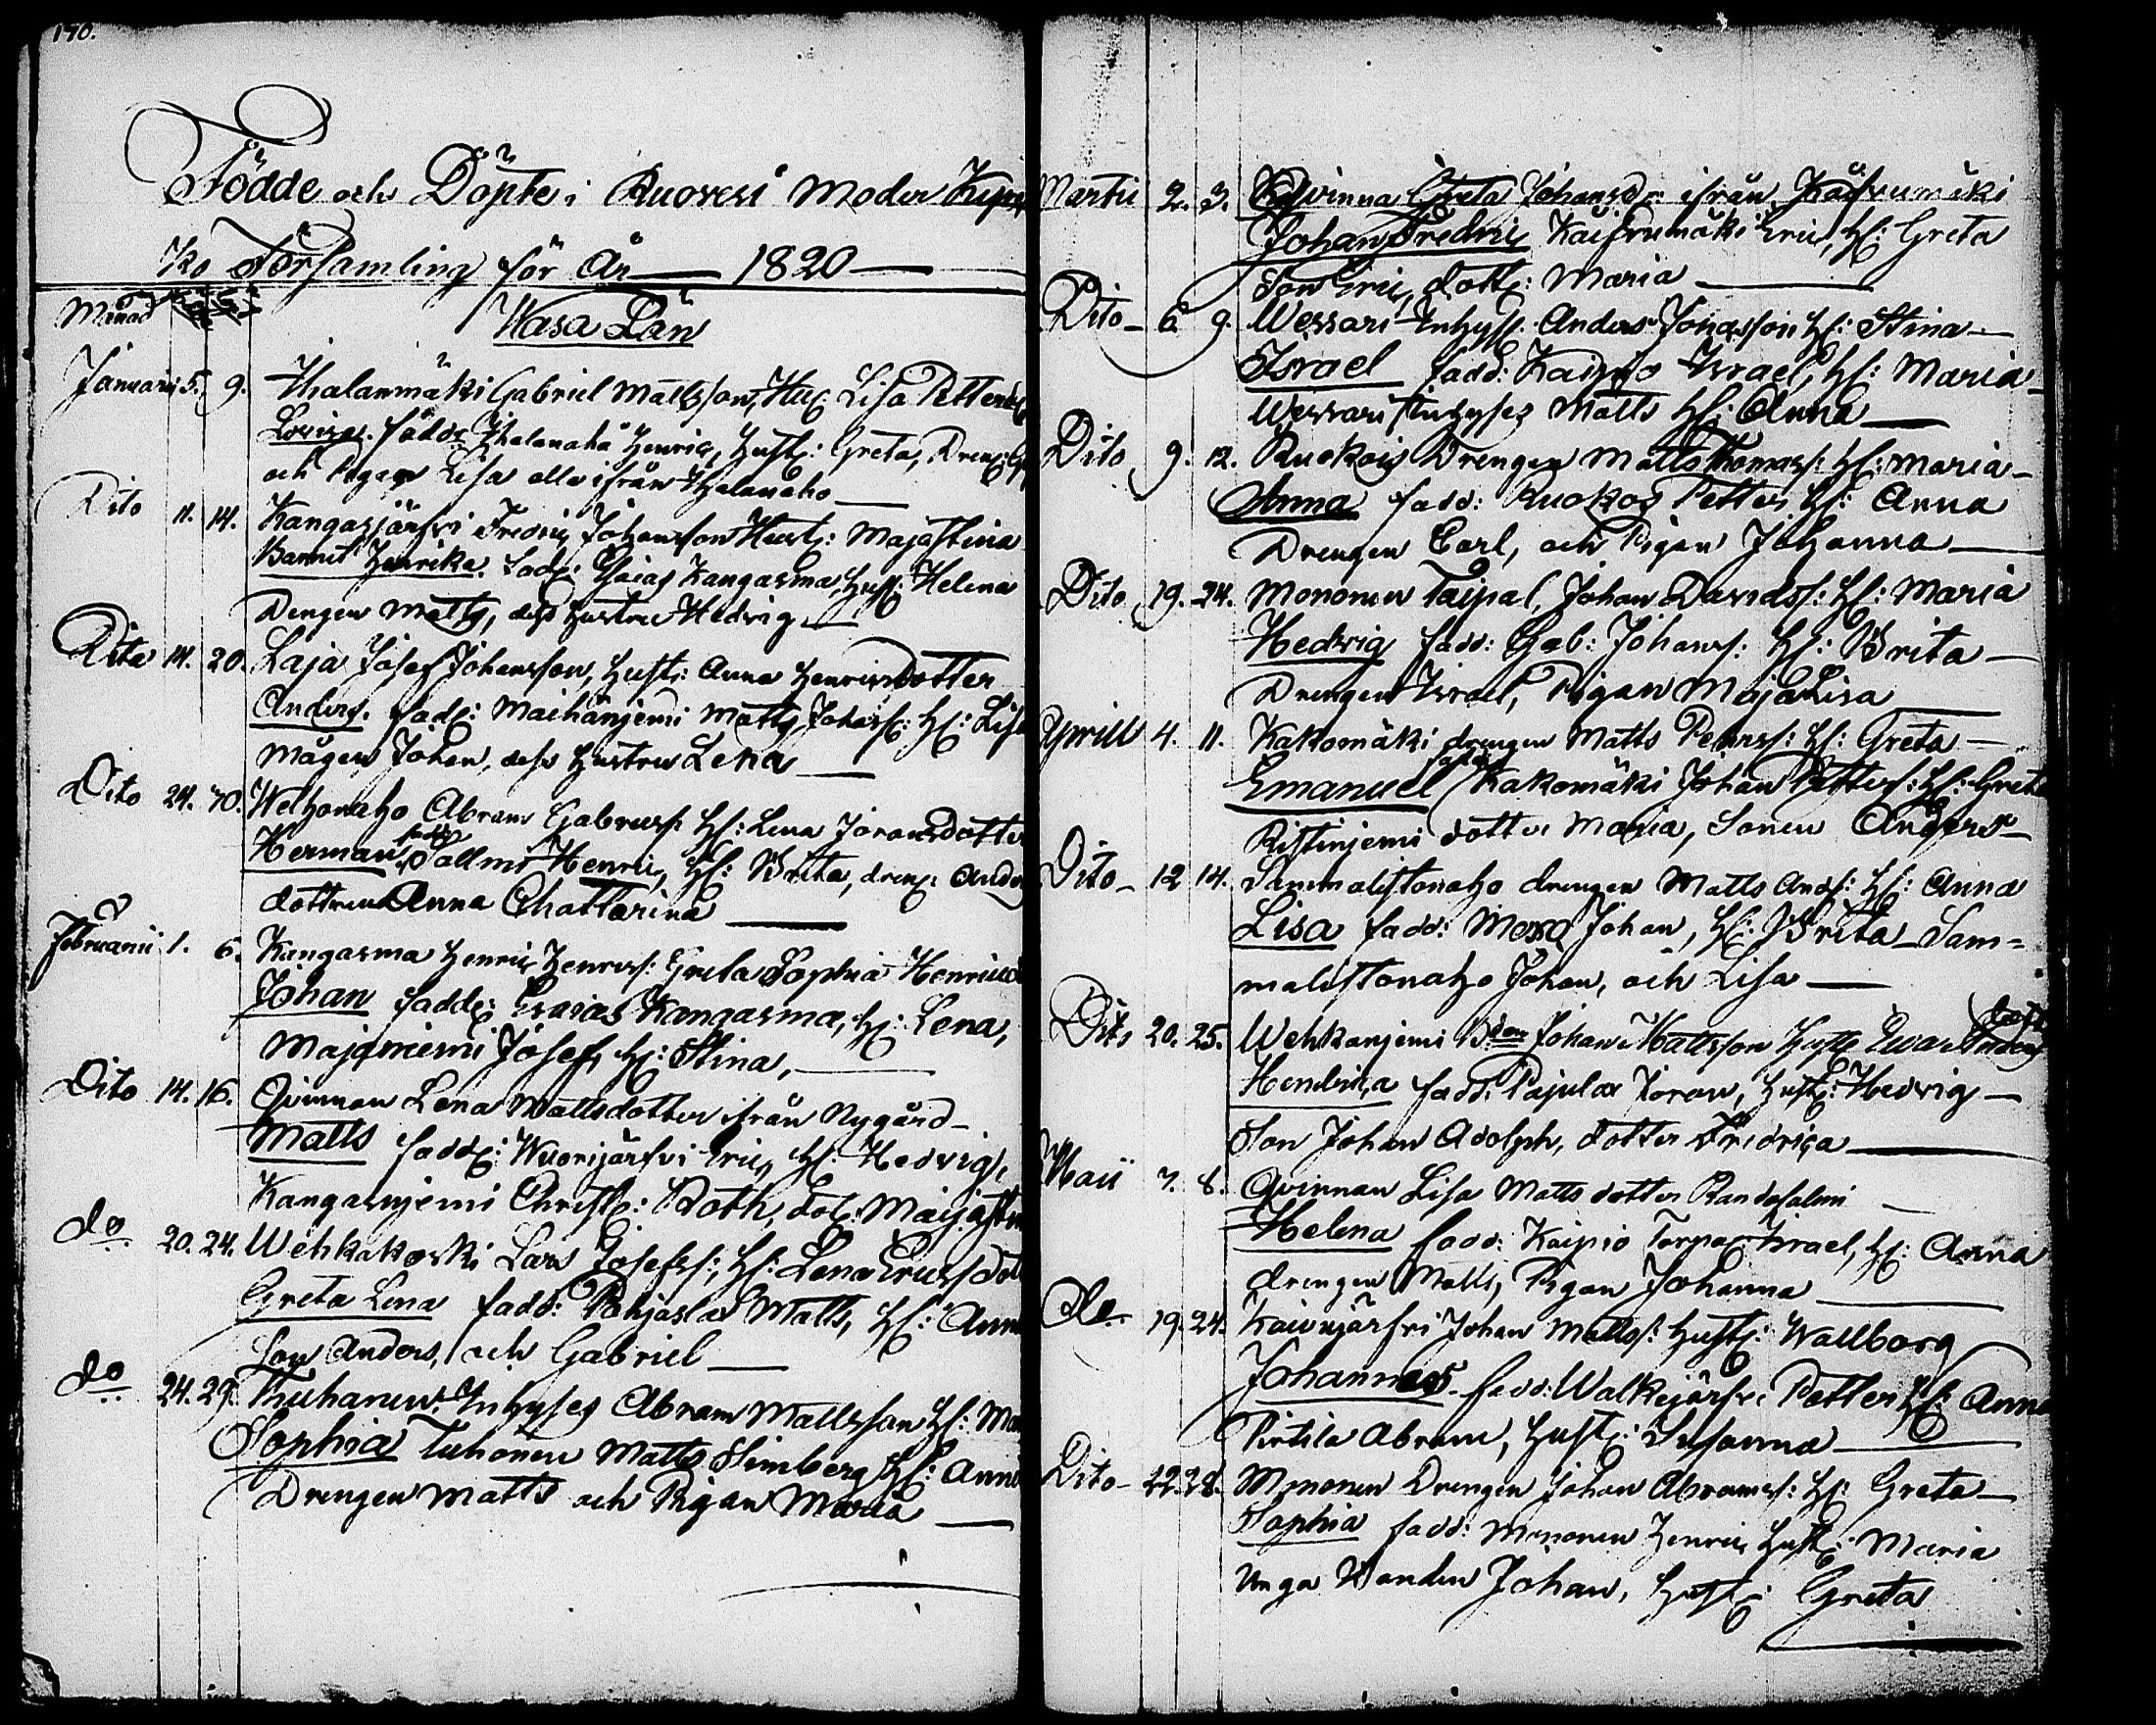 170.
Födde och Döpte i Ruovesi Moder Kyr
ko Församling för År 1820
Månad
Wasa Län
Januarii 5. 9. Ihalanmäki Gabriel Mattsson, Hu: Lisa Petters
Loviza. fadd: Ihalanaho Henric, Hust: Greta, Dreng:
och Pigan Lisa alla ifrån Ihalanaho
Dito 11. 14. Kangasjärfvi Fredric Johansson Hust: Maja Stina
Barnet Henrika. fadd: Esaias Kangasma, Hust: Helena
Dengen Matts, dess hustru Hedvig
Dito 14. 20. Laja Josef Johansson, Hust: Anna Henricsdotter
Anders. fadd: Maihänjemi Matts Johanss: H: Lisa
Mågen Johan, dess Hustru Lena
Dito 24. 30. Welhonaho Abram Gabrielss: H: Lena Joransdotter
Herman fadd: Salmi Henric, H: Brita, dreng: Anders
dottren Anna Chattarina
Februarii 1. 6. Kangasma Henric Henricss: Greta Sophia Henricsd
Johan fadde: Esaias Kangasma, H: Lena,
Majaniemi Josef, H: Stina,
Dito 14. 16. Qvinnan Lena Mattsdotter ifrån Nygård
Matts fadd: Wuorijärfvi Eric, H: Hedvig,
Kangasnjemi Christ: Roth, dot: Maja Stina
do 20. 24. Wehkakoski Lars Josefss: H: Lena Ericsdot
Greta Lena fadd: Pohjasla Matts, H: Anna
Son Anders, och Gabriel
do 24. 29. Tuhanen Inhyses Abram Mattsson H: Ma
Sophia Tuhonen Matts Stimberg H: Anna
Drengen Matts och Pigan Maria
Martii 2. 3. Kqvinna Greta Johansdr ifrån Käifrumäki
Johan Fredric Käifrumäki Eric, H: Greta
Son Eric, dott: Maria
Dito 6 9. Wessari Inhyss. Anders Jonasson H: Stina
Israel fadd: Kaipio Israel, H: Maria
Wessari Inhyses Matts H: Anna
Dito 9. 12. Ruokois Drengen Matts Thomass: H: Maria
Anna fadd: Ruokos Petter H: Anna
Drengen Carl, och Pigan Johanna
Dito 19. 24. Mononen Taipal, Johan Davidss: H: Maria
Hedvig fadd: Gab: Johanss: H: Brita
Drengen Israel, Pigan Maja Lisa
Aprill 4. 11. Kakomäki drengen Matts Petterss: H: Greta
Emanuel fadd: Kakomäki Johan Petterss: H: Greta
Ristinjemi dotter Maria, Sonen Anders
Dito 12 14. Sammalistonaho drengen Matts Andss: H: Anna
Lisa fadd: Mora Johan, H: Brita Sam=
malistonaho Johan, och Lisa
Dito 20. 25. Wehkanjemi Bden Johan Mattsson Hust: Ewa Anders
dott
Hendrica fadd: Pajula Joran, Hust: Hedvig
Son Johan Adolph, dotter Fredrica
Maii 7. 8. Qvinnan Lisa Mattsdotter Randasalmi
Helena fadd: Kaipio Torpar Israel, H: Anna
drengen Matts, Pigan Johanna
do 19. 24. Koivujärfvi Johan Mattss: Hust: Wallborg
Johannes fadd: Walkejärfvi Petter H: Anna
Pirtila Abram, Hust: Susanna
Dito 22. 28. Mononen Drengen Johan Abramss: H: Greta
Sophia fadd: Mononen Henric Hust: Maria
Unga Johan, Hust: Greta